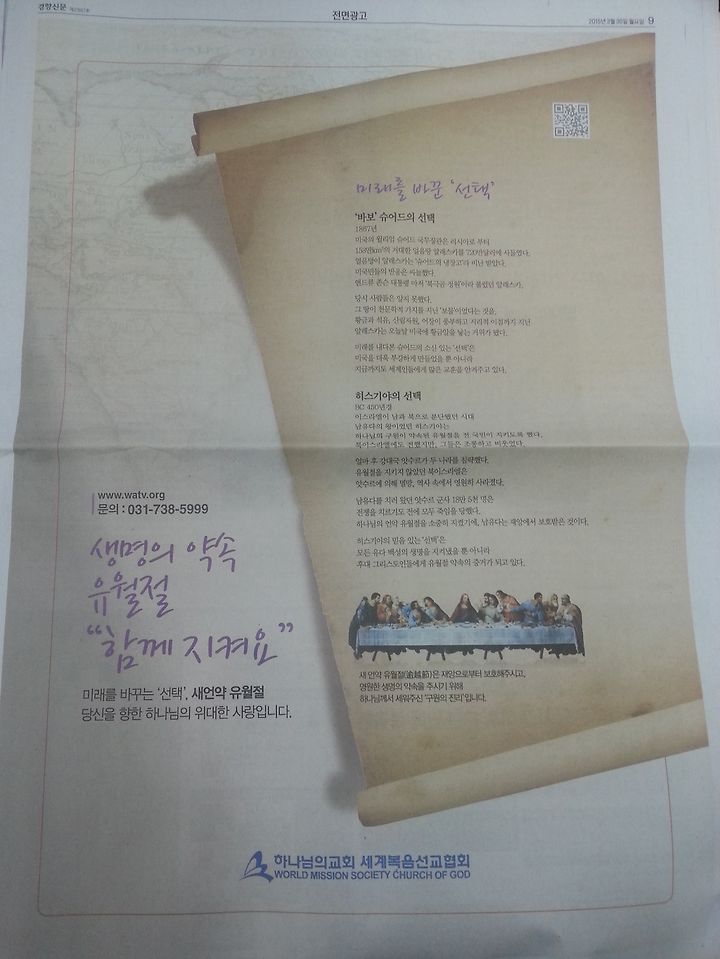 경향신문
전면광고
2015년 3월 30일 월요일 9
미래를 바꾼 '선택'
'바보' 슈어드의 선택
1867년
미국의 윌리엄 슈어드 국무장관은 러시아로 부터
153만km²의 거대한 얼음땅 알래스카를 720만달러에 사들였다.
얼음덩이 알래스카는 '슈어드의 냉장고'라 비난 받았다.
미국민들의 반응은 싸늘했다.
앤드류 존슨 대통령 마저 '북극곰 정원'이라 불렀던 알래스카.
당시 사람들은 알지 못했다.
그 땅이 천문학적 가치를 지닌 '보물'이었다는 것을.
황금과 석유, 산림자원, 어장이 풍부하고 지리적 이점까지 지닌
알래스카는 오늘날 미국에 황금알을 낳는 거위가 됐다.
미래를 내다본 슈어드의 소신 있는 '선택'은
미국을 더욱 부강하게 만들었을 뿐 아니라
지금까지도 세계인들에게 많은 교훈을 안겨주고 있다.
히스기야의 선택
BC 450년경
이스라엘이 남과 북으로 분단됐던 시대
남유다의 왕이었던 히스기야는
하나님의 구원이 약속된 유월절을 전 국민이 지키도록 했다.
북이스라엘에도 전했지만, 그들은 조롱하고 비웃었다.
얼마 후 강대국 앗수르가 두 나라를 침략했다.
유월절을 지키지 않았던 북이스라엘은
앗수르에 의해 멸망, 역사 속에서 영원히 사라졌다.
남유다를 치러 왔던 앗수르 군사 18만 5천 명은
전쟁을 치르기도 전에 모두 죽임을 당했다.
하나님의 언약 유월절을 소중히 지켰기에, 남유다는 재앙에서 보호받은 것이다.
히스기야의 믿음 있는 '선택'은
모든 유다 백성의 생명을 지켜냈을 뿐 아니라
후대 그리스도인들에게 유월절 약속의 증거가 되고 있다.
새 언약 유월절(逾越節)은 재앙으로부터 보호해주시고,
영원한 생명의 약속을 주시기 위해
하나님께서 세워주신 '구원의 진리'입니다.
www.watv.org
문의 : 031-738-5999
생명의 약속
유월절
"함께 지켜요"
미래를 바꾸는 '선택', 새언약 유월절
당신을 향한 하나님의 위대한 사랑입니다.
하나님의교회 세계복음선교협회
WORLD MISSION SOCIETY CHURCH OF GOD